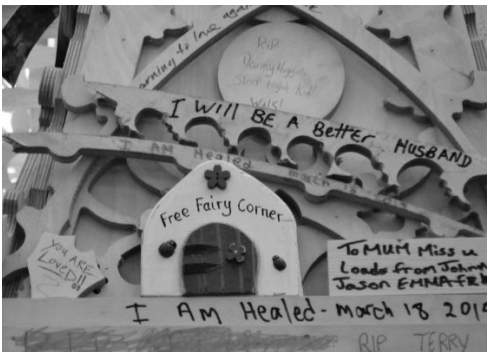 to love again
RIP
Danny Higgins
Sleep tight
I WILL BE A Better HUSBAND
I AM Healed march 18
Free Fairy Corner
YOU ARE
LoveD!!
To MUM Miss u
Loads from John
Jason EMMA
I AM Healed - March 18 2014
RIP TERRY